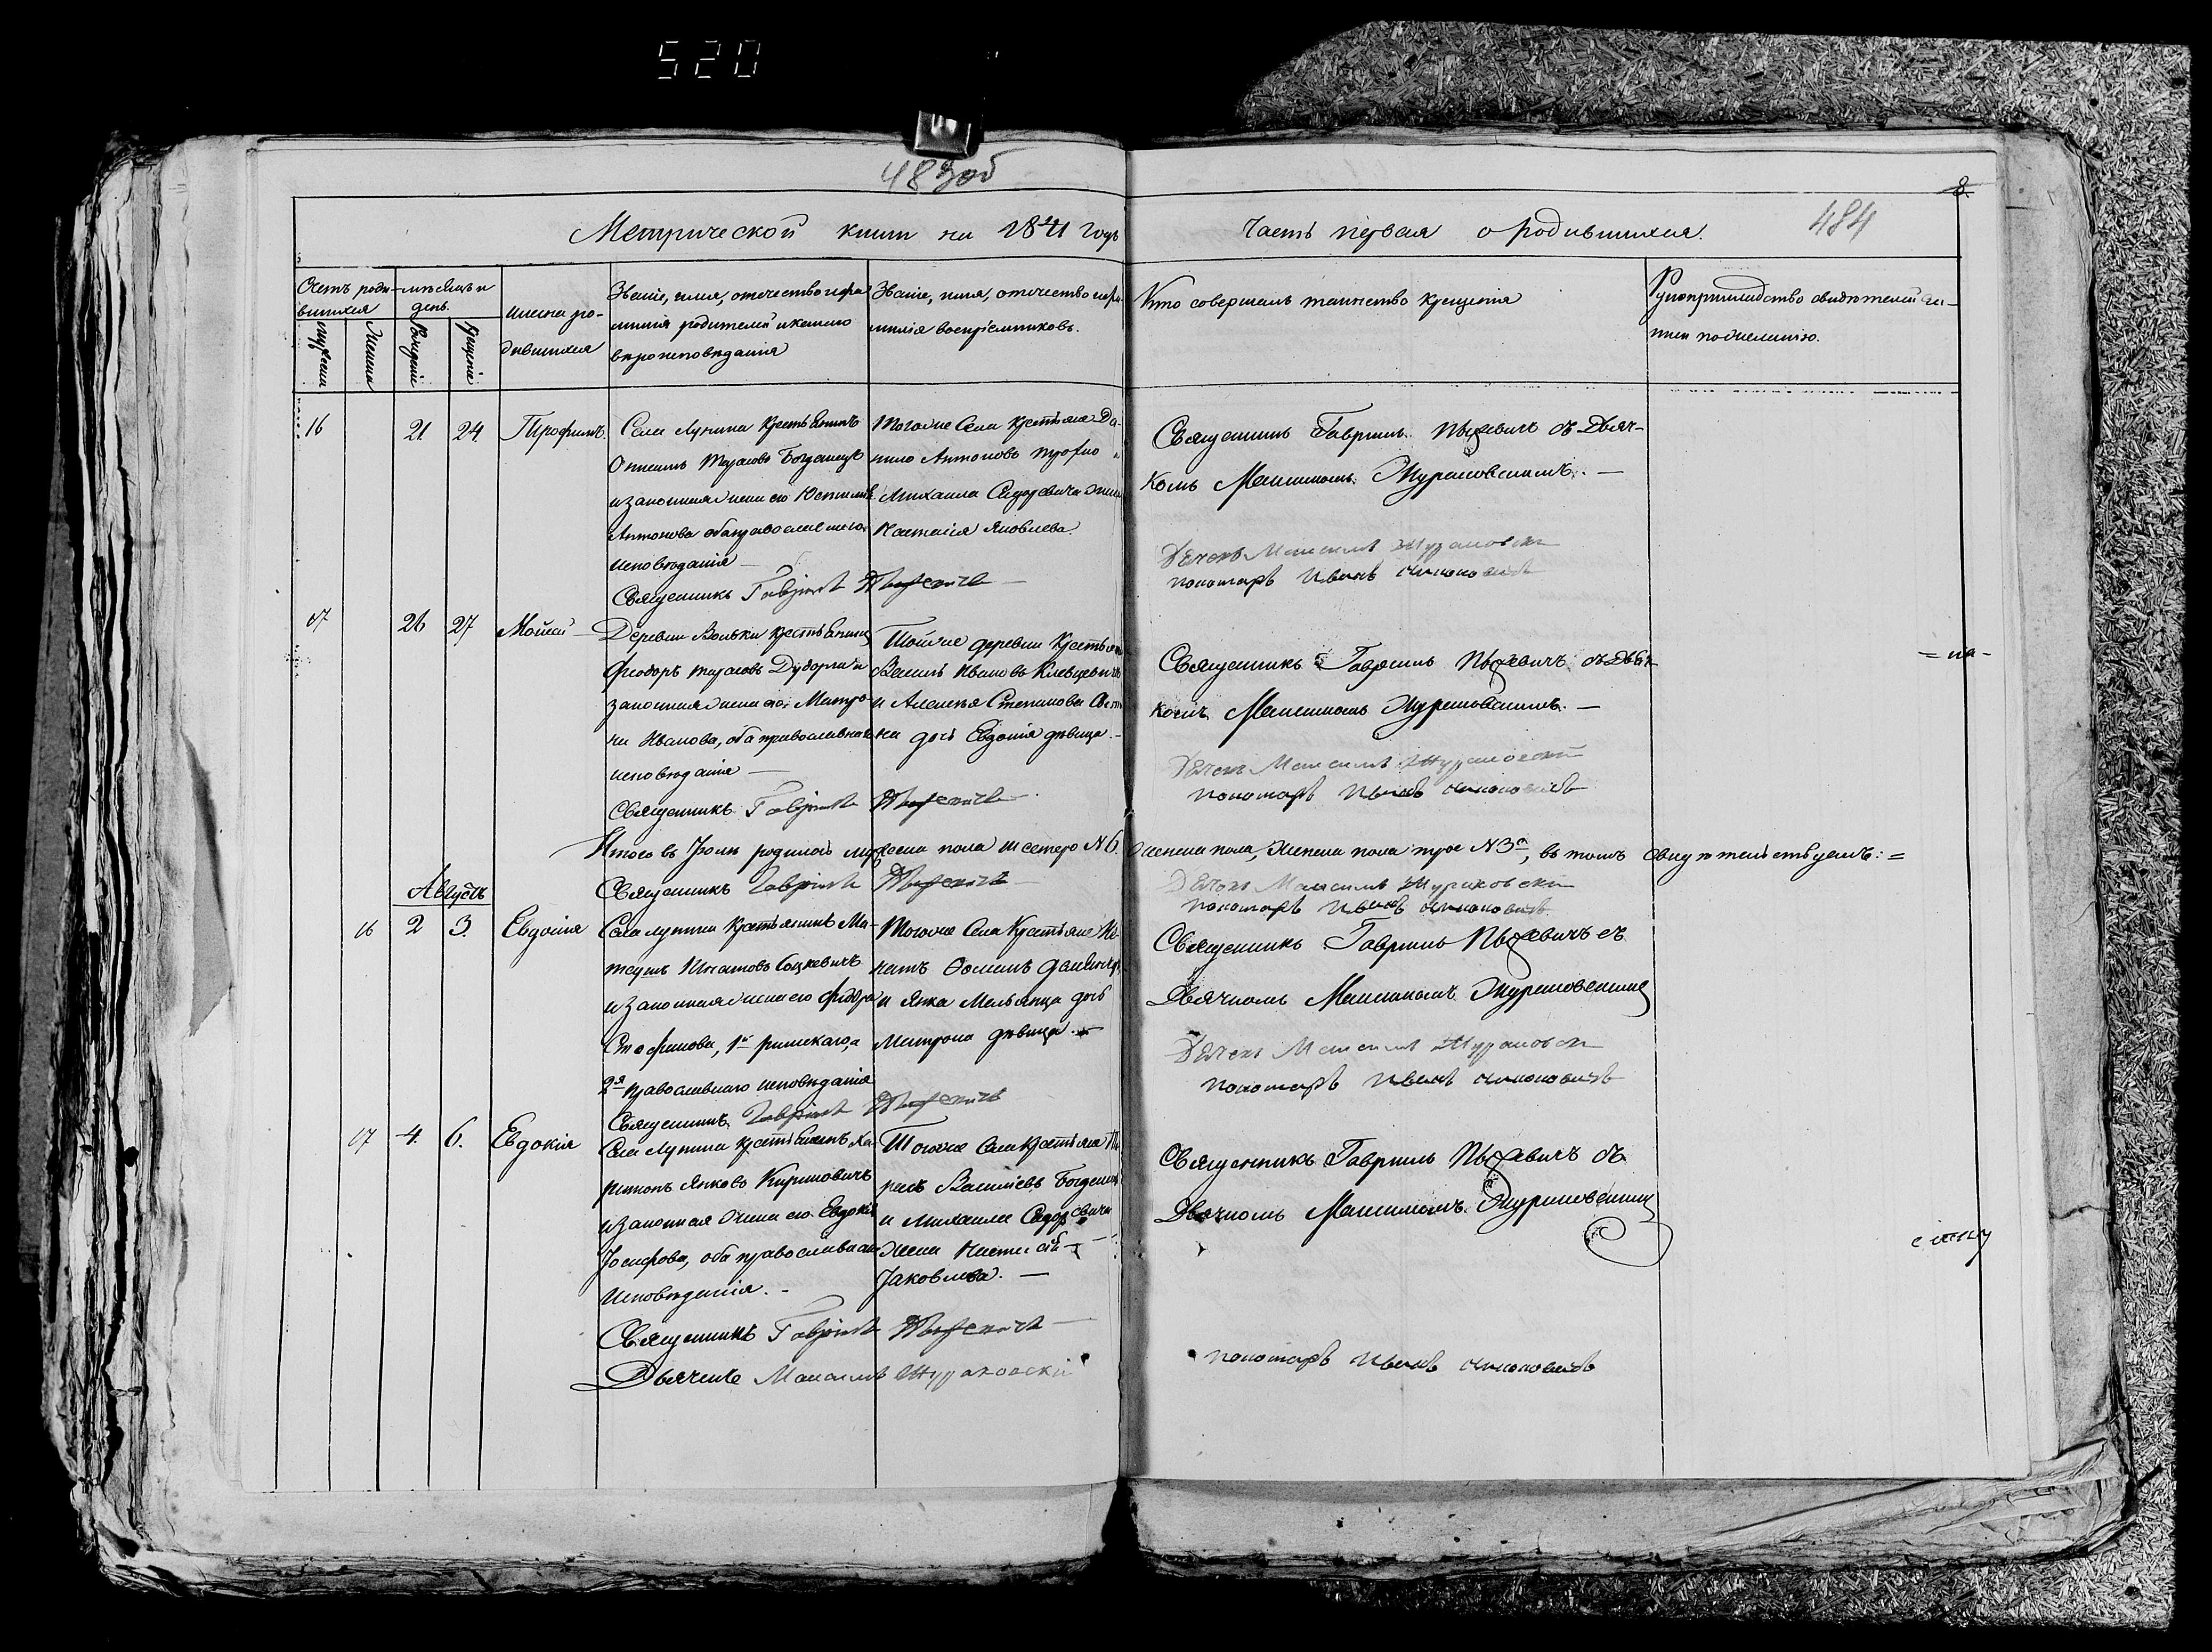 520
483 об
8.
484
Метрической книги на 1841 годъ
Часть первая о родившихся.
Счетъ роди-
вшихся
мужеска
Женска
мѣсяцъ и
день.
Рожденіе
Крещеніе
имена ро-
дившихся
Званіе, имя, отечество и фа
милія родителей и какого
вѣроисповѣданія
Званіе, имя, отечество и фа-
милія воспріемниковъ.
Кто совершалъ таинство крещенія
Рукоприкладство свидѣтелей за-
писи по желанію.
16
21
24
Трофимъ.
Села Лунина Крестьянинъ
Тарасовъ Богданецъ
и законная жена его Юстина
Антонова оба православнаго
исповѣданія —
Священникъ Гавріилъ
Тогоже Села Крестьяне Да-
нило Антоновъ
Михаила Сидоревича жена
Настасія Яковлева.
Священникъ Гавріилъ Пыжевичъ съ Дьяч-
комъ Максимомъ Жураковскимъ. —
Дячокъ Максимъ Жураковски
пономаръ Иванъ
17
26
27
Мойсей —
Деревни Вольки Крестьянинъ
Феодоръ Тарасовъ и
законная жена его Матро
на Иванова, оба православнаго
исповѣданія —
Священникъ Гавріилъ
Тойже деревни Крестьяне
Василь Ивановъ
и Алексѣя Степанова
на дочь Евдокія дѣвица. —
Священникъ Гавріилъ Пыжевичъ съ Дьяч-
комъ Максимомъ Жураковскимъ. —
Дячокъ Максимъ Жураковский
пономаръ Иванъ
= на -
Итого въ Іюлѣ родилось мужеска пола шестеро № 6.
Женска пола трое № 3й, въ томъ свидѣтельствуемъ: =
Священникъ Гавріилъ
Дячокъ Максимъ Жураковски
пономаръ Иванъ
Августъ
16
2
3.
Евдокія
Села Лунина Крестьянинъ Ма-
теушъ Игнатовъ Соцкевичъ
и законная жена его Федора
Стефанова, 1й римскаго, а
2я православнаго исповѣданія
Священникъ Гавріилъ
Тогоже Села Крестьяне
и Янка Мельянца дочь
Матрона дѣвица. —
Священникъ Гавріилъ Пыжевичъ съ
Дьячкомъ Максимомъ Жураковскимъ
Дячокъ Максимъ Жураковски
пономаръ Иванъ
17
4.
6.
Евдокія
Села Лунина Крестьянинъ Ха-
ритонъ Янковъ Кириновичъ
и законная жена его Евдокія
Іосифова, оба православнаго
Исповѣданія. -
Священникъ Гавріилъ
Дьячекъ Максимъ Жураковскій
Тогоже Села Крестьяне
Василіевъ Богданецъ
и Михаила Сидоревича
жена Настасія
Іаковлева. —
Священникъ Гавріилъ Пыжевичъ съ
Дьячкомъ Максимомъ Жураковскимъ
пономаръ Иванъ